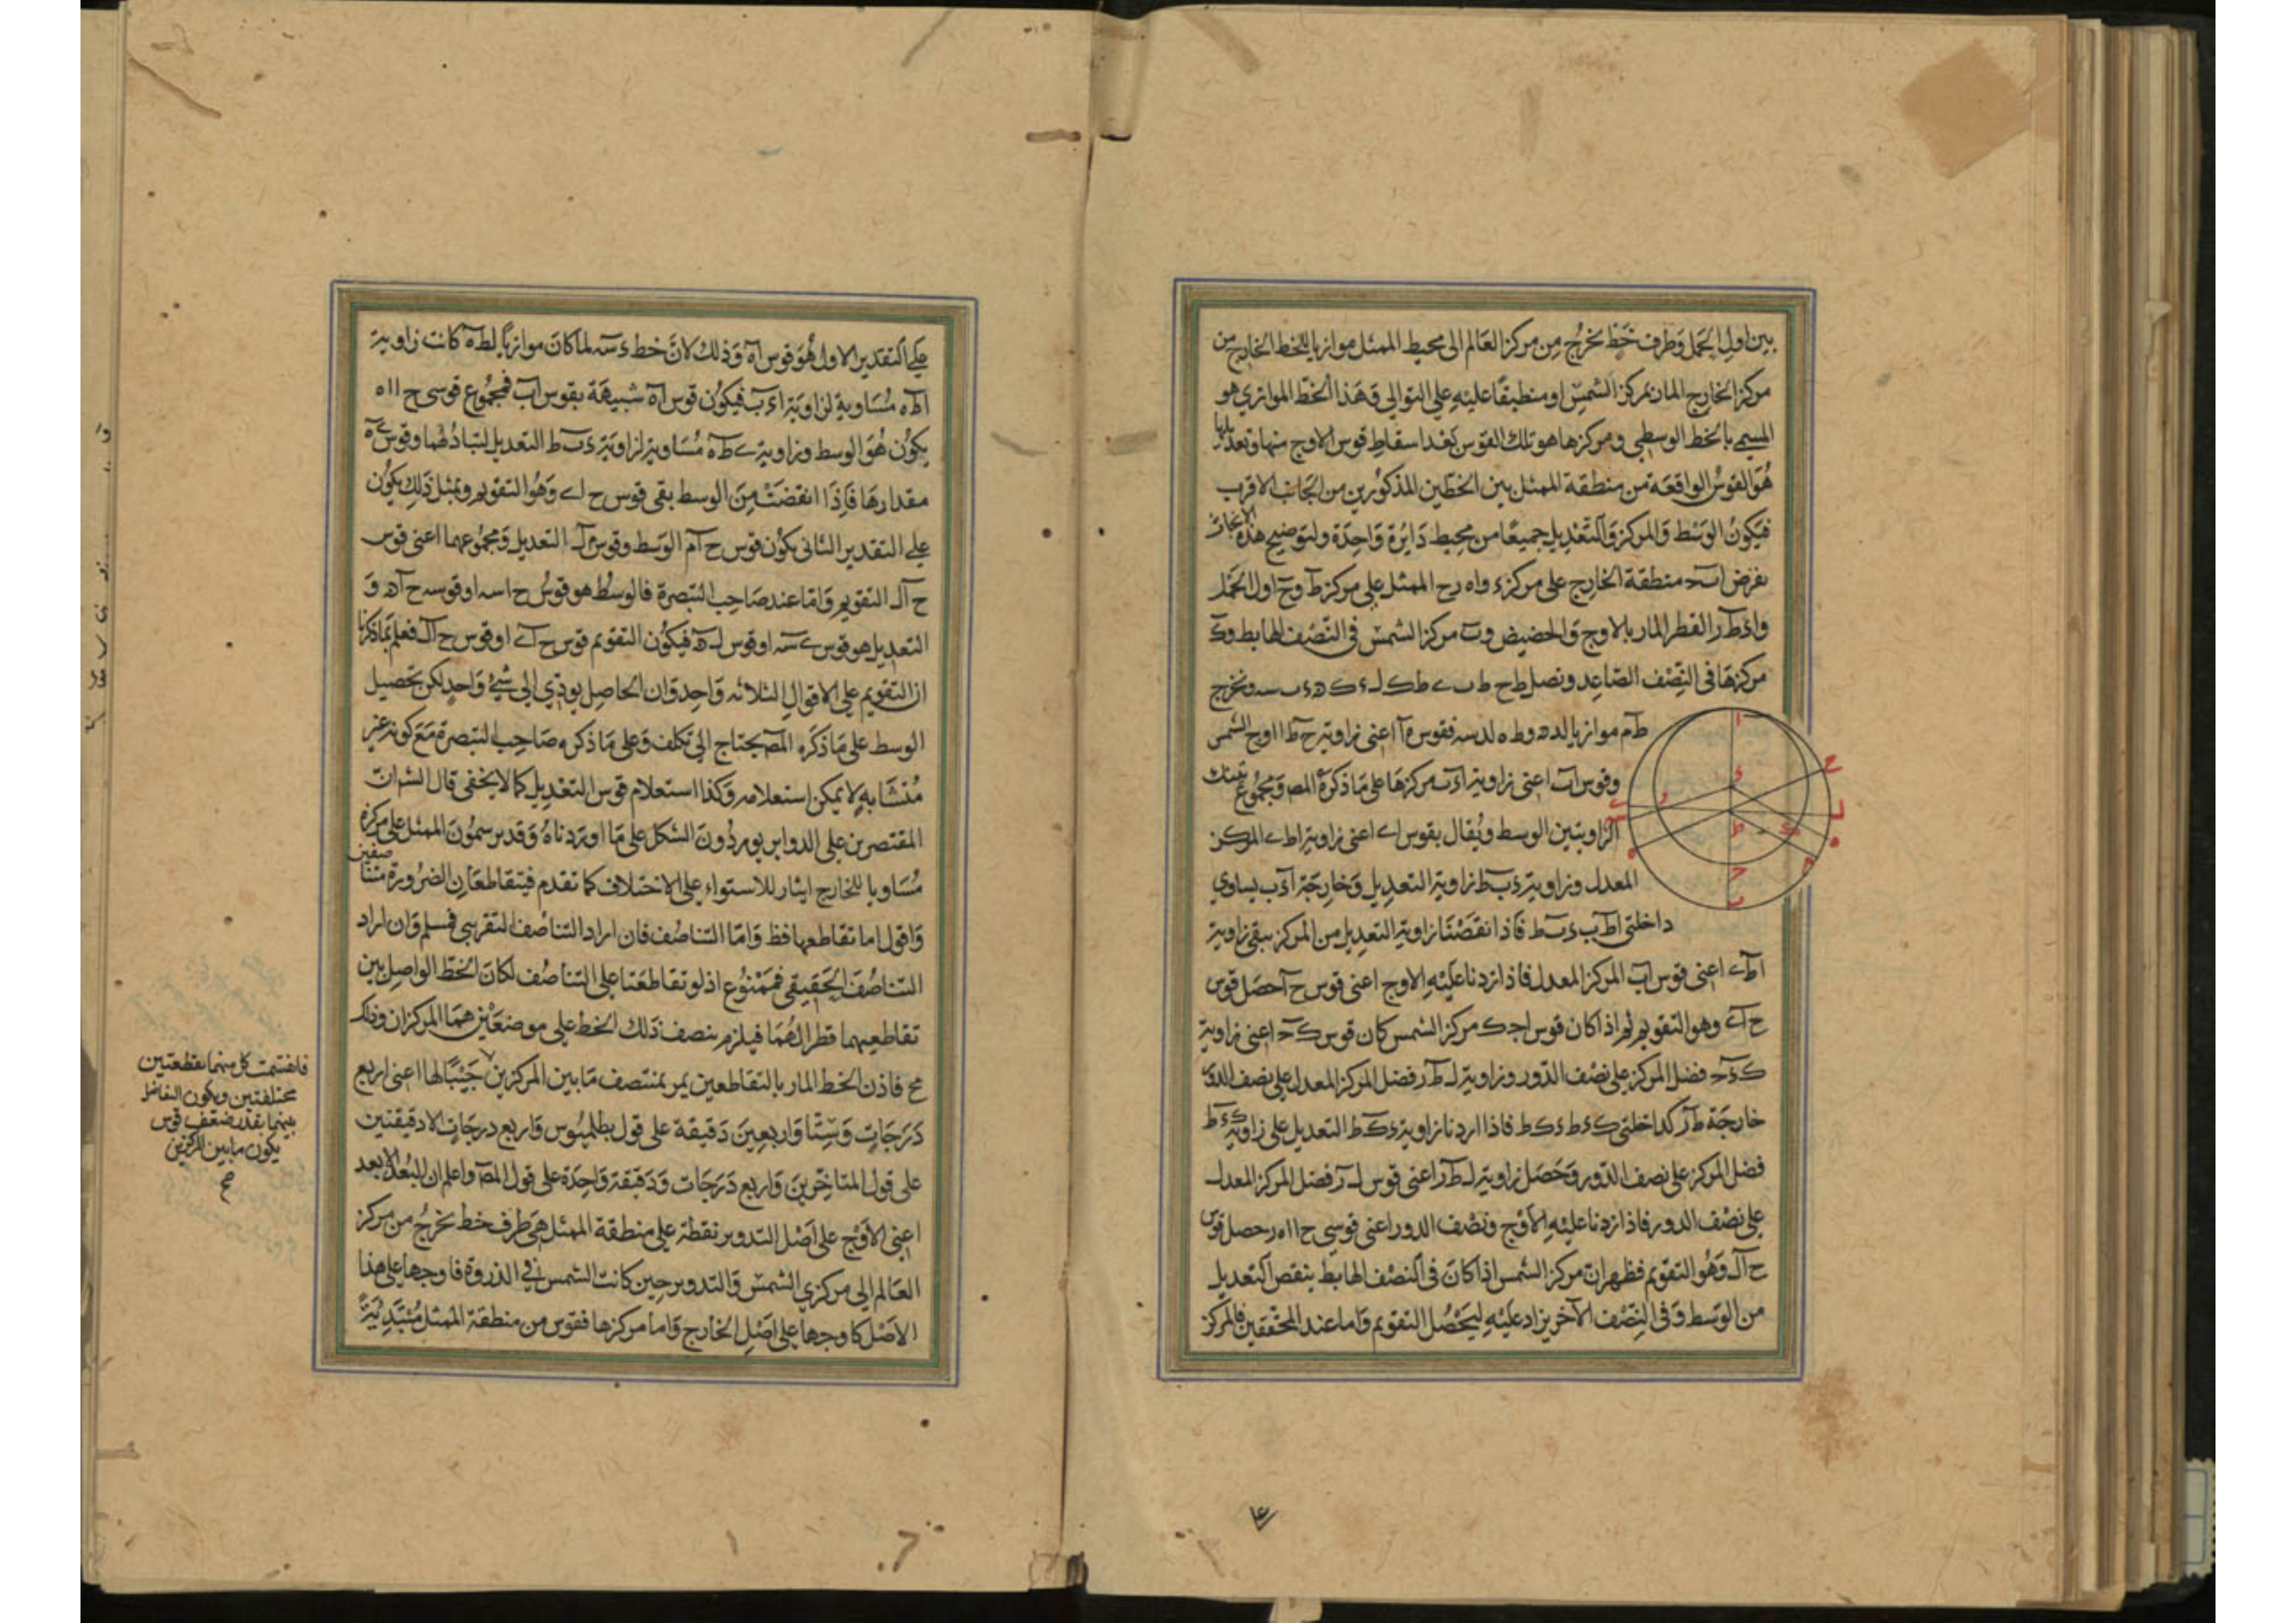 بين اول الحمل وطرف خط يخرج من مركز العالم الى محيط الممثل موازيا للخط الخارج من
مركز الخارج المار بمركز الشمس او منطبقا عليه على التوالى وهذا الخط الموازي هو
المسمى بالخط الوسطى ومركزها هو تلك القوس بعد اسقاط قوس الاوج منها وتعديلها
هو القوس الواقعة من منطقة الممثل بين الخطين المذكورين من الجانب الاقرب
فيكون الوسط والمركز والتعديل جميعا من محيط دائرة واحدة ولتوضيح هذه
نفرض منطقة الخارج على مركز ء واه رح الممثل على مركز ط وح اول الحمل
القطر المار بالاوج والحضيض وب مركز الشمس فى النصف الهابط وك
مركزها فى النصف الصاعد ونصل ونخرج
طم موازيا اعنى زاوية ح ط ا اوج الشمس
وقوس اب اعنى زاوية مركزها على ما ذكره المص ومجموع
الزاويتين الوسط ويقال بقوس اے اعنى زاوية اطے المركز
المعدل وزاوية ءب‌ط زاوية التعديل وخارجة اءب يساوي
داخلتى اطب ءب‌ط فاذا نقصنا زاوية التعديل من المركز يبقى زاوية
اطے اعنى قوس المركز المعدل فاذا زدنا عليه الاوج اعنى قوس ح ا حصل قوس
ح اے وهو التقويم ثم اذا كان قوس مركز الشمس كان قوس ك ح اعنى زاوية
كءح فضل المركز على نصف الدور وزاوية ل ط ر فضل المركز المعدل على نصف الدور
خارجة فاذا زدنا زاوية ءك‌ط التعديل على زاوية
فضل المركز على نصف الدور وحصل زاوية ل ط ر اعنى قوس ل ر فضل المركز المعدل
على نصف الدور فاذا زدنا عليه الاوج ونصف الدور اعنى قوسي حصل قوس
ح ال وهو التقويم فظهر ان مركز الشمس اذا كان فى النصف الهابط ينقص التعديل
من الوسط وفى النصف الآخر يزاد عليه ليحصل التقويم واما عند المحققين فالمركز
على التقدير الاول هو قوس اه وذلك لان خط ءسه لما كان موازيا لطه كانت زاوية
اطه مساوية لزاوية اءب فيكون قوس اه شبيهة بقوس اب فمجموع قوسى
يكون هو الوسط وزاوية ےطه مساوية لزاوية ءب‌ط التعديل لتبادلهما وقوس ےه
مقدارها فاذا انقضت من الوسط بقى قوس ح اے وهو التقويم وبمثل ذلك يكون
على التقدير الثانى يكون قوس ح ام الوسط وقوس م ل التعديل ومجموعهما اعنى قوس
ح ال التقويم واما عند صاحب التبصرة فالوسط هو قوس ح اسه او قوس
التعديل هو قوس ےسه او قوس فيكون التقويم قوس ح اے او قوس ح ال فعلم بما ذكرنا
ان التقويم على الاقوال الثلاثة واحد وان الحاصل يودي الى شئ واحد لكن تحصيل
الوسط على ما ذكره المص يحتاج الى تكلف وعلى ما ذكره صاحب التبصرة مع كونه غير
متشابه لا يمكن استعلامه وكذا استعلام قوس التعديل كما لا يخفى قال الش ان
المقتصرين على الدواير يوردون الشكل على ما اوردناه وقد يرسمون الممثل على مركزه
مساويا للخارج ايثارا للاستواء على الاختلاف كما تقدم فيتقاطعان الضرورة متناصفين
واقول اما تقاطعهما فظ واما التناصف فان اراد التناصف التقريبى فمسلم وان اراد
التناصف الحقيقى فممنوع اذ لو تقاطعتا على التناصف لكان الخط الواصل بين
تقاطعيهما قطرا لهما فيلزم بنصف ذلك الخط على موضعين هما المركزان وذلك
مح فاذن الخط المار بالتقاطعين يمر بمنتصف ما بين المركزين لها اعنى اربع
درجات وستا واربعين دقيقة على قول بطلميوس واربع درجات الا دقيقتين
على قول المتاخرين واربع درجات ودقيقة واحدة على قول المص واعلم ان البعد الابعد
اعنى الاوج على اصل التدوير نقطة على منطقة الممثل هى طرف خط يخرج من مركز
العالم الى مركزي الشمس والتدوير حين كانت الشمس فى الذروة فاوجها على هذا
الاصل كاوجها على اصل الخارج واما مركزها فقوس من منطقة الممثل مبتدية
فانقسمت كل منهما بقطعتين
مختلفتين ويكون التفاضل
بينهما بقدر ضعف قوس
يكون ما بين المركزين
صح